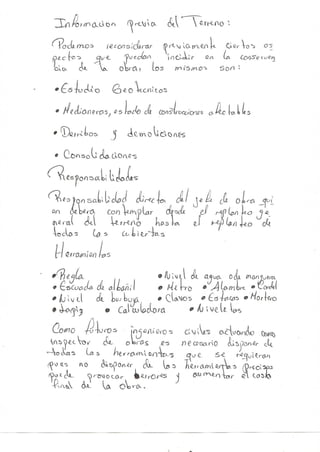 Información previa del Terreno:
Podemos reconsiderar previamente ciertos as
pectos que puedan incidir en la conserven
cia de la obra, los mismos son:
• Estudio Geotecnico
• Medianeros, estado de construcciones afectables
• Derribos y demoliciones
• Consolidaciones
Responsabilidades
Responsabilidad directa del jefe de obra qui
en debera contemplar desde el replanteo ge
neral del terreno hasta el replanteo de
todas las cubiertas
Herramientas
• Regla • Nivel de agua o de manguera
• Escuada de albañil • Metro • Alambre • Cordel
• Nivel de burbuja • Clavos • Estacas • Mortero
• Lapiz • Calculadora • Niveletas
Como futuros ingenieros civiles actuando como
inspector de obras es necesario disponer de
todas las herramientas que se requieran
pues no disponer de las herramientas precisas
puede provocar errores y aumentar el costo
final de la obra.